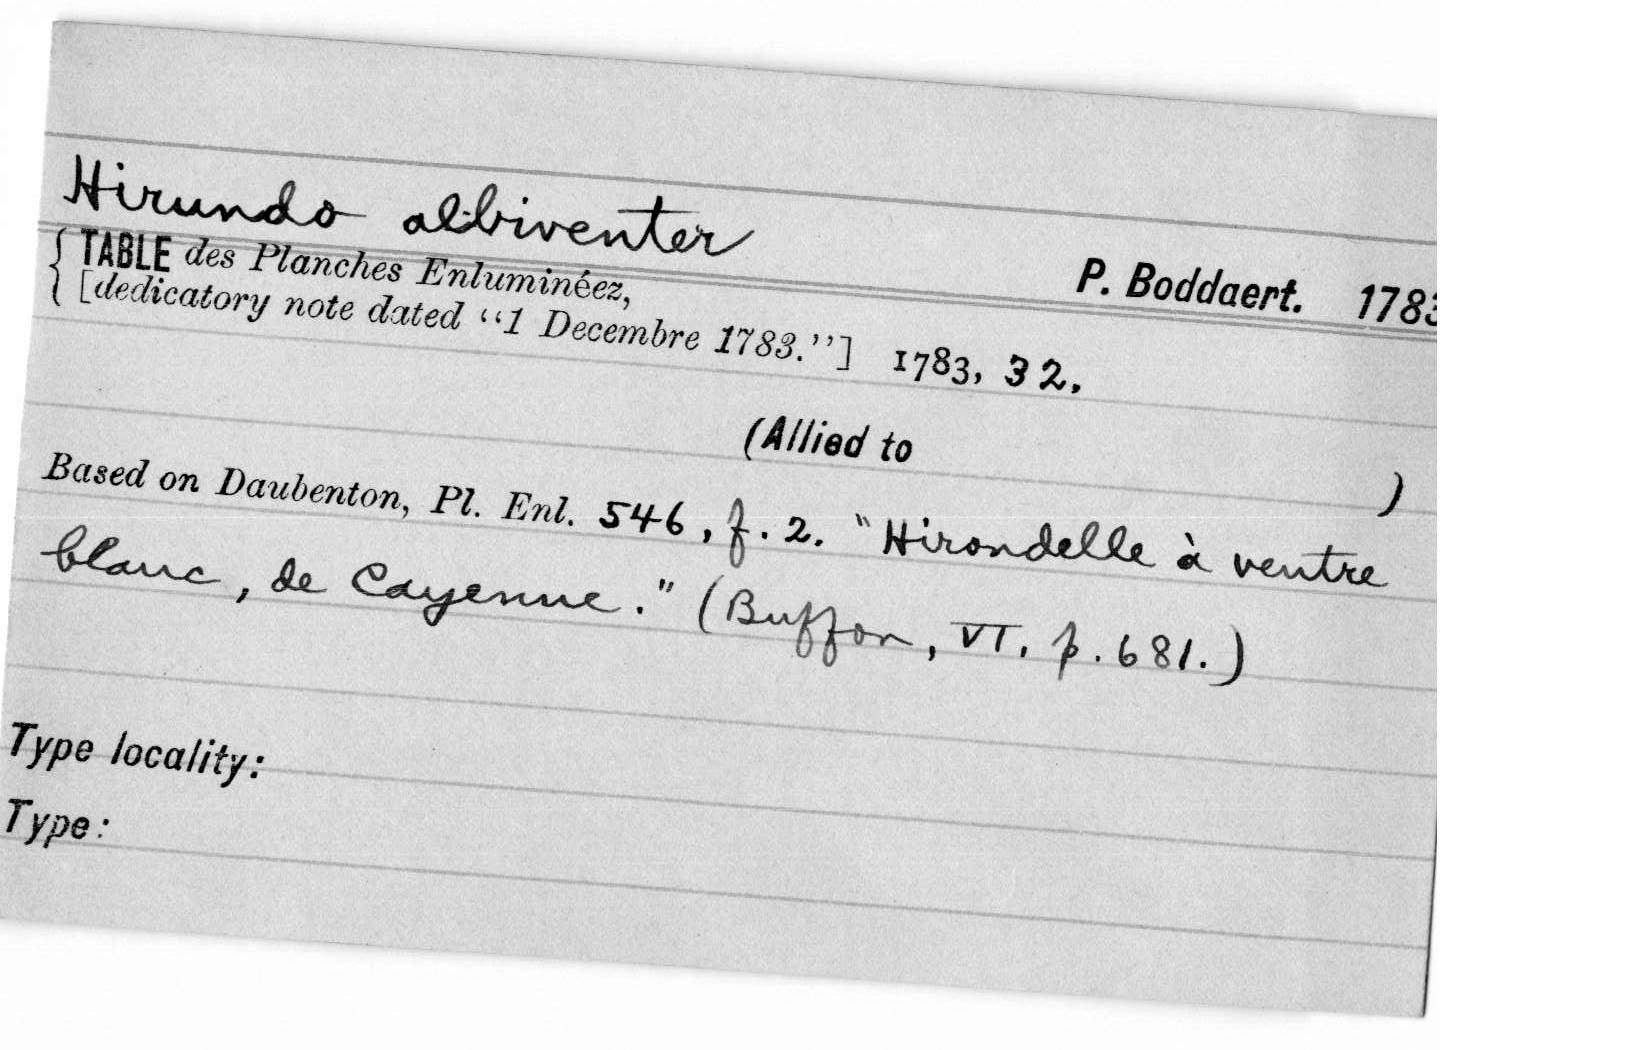 Hirundo albiventer
P. Boddaert. 1783
TABLE des Planches Enluminéez,
[dedicatory note dated “1 Decembre 1783.”] 1783, 32.
(Allied to )
Based on Daubenton, Pl. Enl. 546, f. 2. "Hirondelle à ventre
blanc, de Cayenne." (Buffon, VI, p. 681.)
Type locality:
Type: